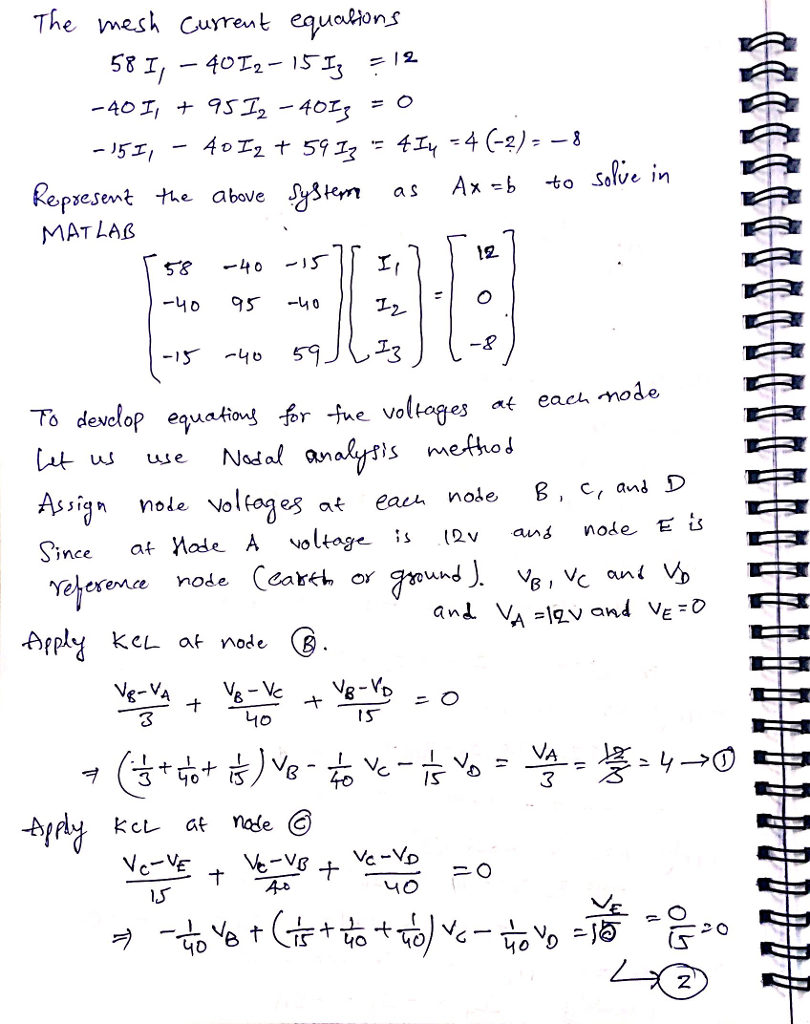 The mesh Current equations
58 I₁ - 40I₂ - 15 I₃ = 12
-40 I₁ + 95 I₂ - 40I₃ = 0
-15 I₁ - 40 I₂ + 59 I₃ = 4I₄ = 4 (-2) = -8
Represent the above System as Ax = b to solve in
MATLAB
[58 -40 -15] [I₁] = [12]
[-40 95 -40] [I₂] = [0]
[-15 -40 59] [I₃] = [-8]
To develop equations for the voltages at each node
Let us use Nodal analysis method
Assign node voltages at each node B, C, and D
Since at Node A voltage is 12V and node E is
reference node (earth or ground). VB, VC and VD
and VA = 12V and VE = 0
Apply KCL at node Ⓑ.
(VB-VA)/3 + (VB-VC)/40 + (VB-VD)/15 = 0
⇒ (1/3 + 1/40 + 1/15) VB - 1/40 VC - 1/15 VD = VA/3 = 12/3 = 4 → ①
Apply KCL at node Ⓒ
(VC-VE)/15 + (VC-VB)/40 + (VC-VD)/40 = 0
⇒ -1/40 VB + (1/15 + 1/40 + 1/40) VC - 1/40 VD = VE/15 = 0/15 = 0
→ ②